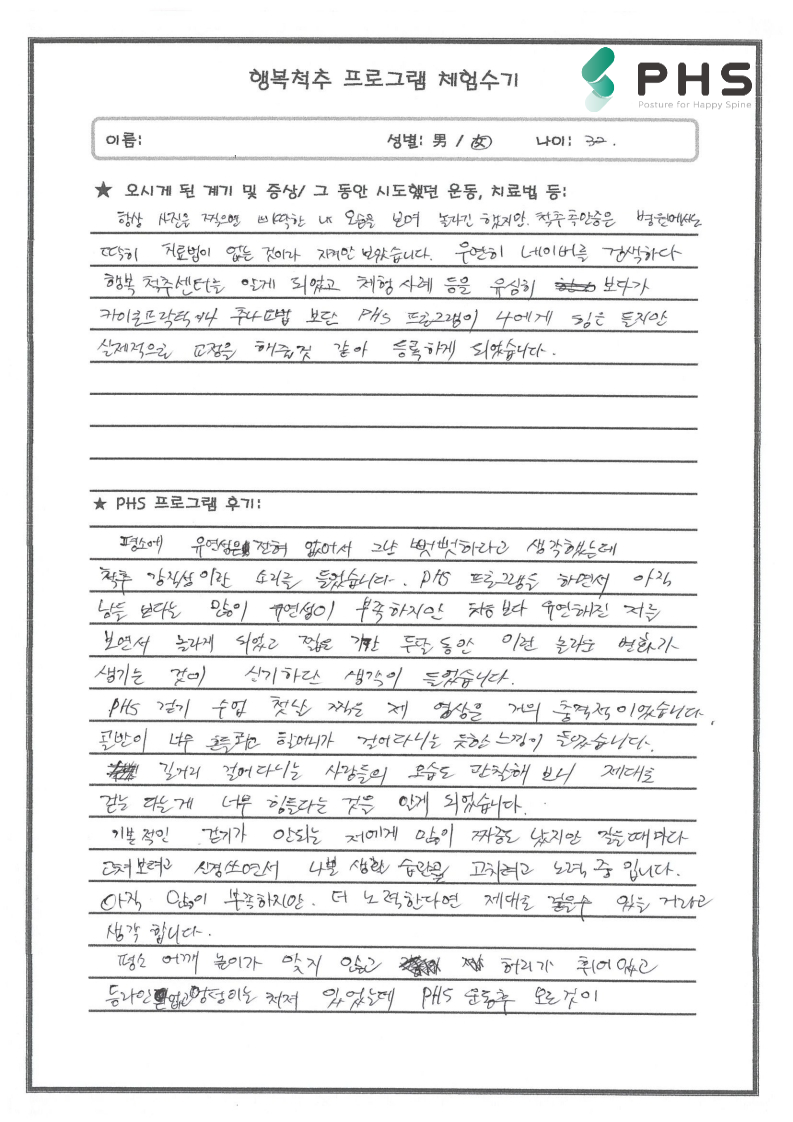 행복척추 프로그램 체험수기
PHS
Posture for Happy Spine
이름: 성별: 男 / 女 나이: 32.
★ 오시게 된 계기 및 증상/ 그 동안 시도했던 운동, 치료법 등:
항상 사진을 찍으면 삐딱한 내 모습을 보며 놀라긴 했지만. 척추측만증은 병원에서는
딱히 치료법이 없는 것이라 지켜만 보았습니다. 우연히 네이버를 검색하다
행복 척추센터를 알게 되었고 체험 사례 등을 유심히 보다가
카이로프락틱이나 추나요법 보단 PHS 프로그램이 나에게 힘은 들지만
실제적으로 교정을 해줄것 같아 등록하게 되었습니다.
★ PHS 프로그램 후기:
평소에 유연성은 전혀 없어서 그냥 뻣뻣하라고 생각했는데
척추 강직성이란 소리를 들었습니다. PHS 프로그램을 하면서 아직
남들 보다는 많이 유연성이 부족하지만 처음 보다 유연해진 저를
보면서 놀라게 되었고 짧은 기간 두달 동안 이런 놀라운 변화가
생기는 것이 신기하단 생각이 들었습니다.
PHS 걷기 수업 첫날 찍은 제 영상을 거의 충격적이었습니다.
골반이 너무 흔들리고 할머니가 걸어다니는 듯한 느낌이 들었습니다.
길거리 걸어다니는 사람들의 모습도 관찰해 보니 제대로
걷는 다는게 너무 힘들다는 것을 알게 되었습니다.
기본적인 걷기가 안되는 저에게 많이 짜증도 났지만 걸을때마다
고쳐보려고 신경쓰면서 나쁜 생활 습관을 고치려고 노력중 입니다.
아직 많이 부족하지만. 더 노력한다면 제대로 걸을수 있을 거라고
생각 합니다.
평소 어깨 높이가 맞지 않고 허리가 휘어있고
등라인 없고 엉덩이는 처져 있었는데 PHS 운동후 모든것이